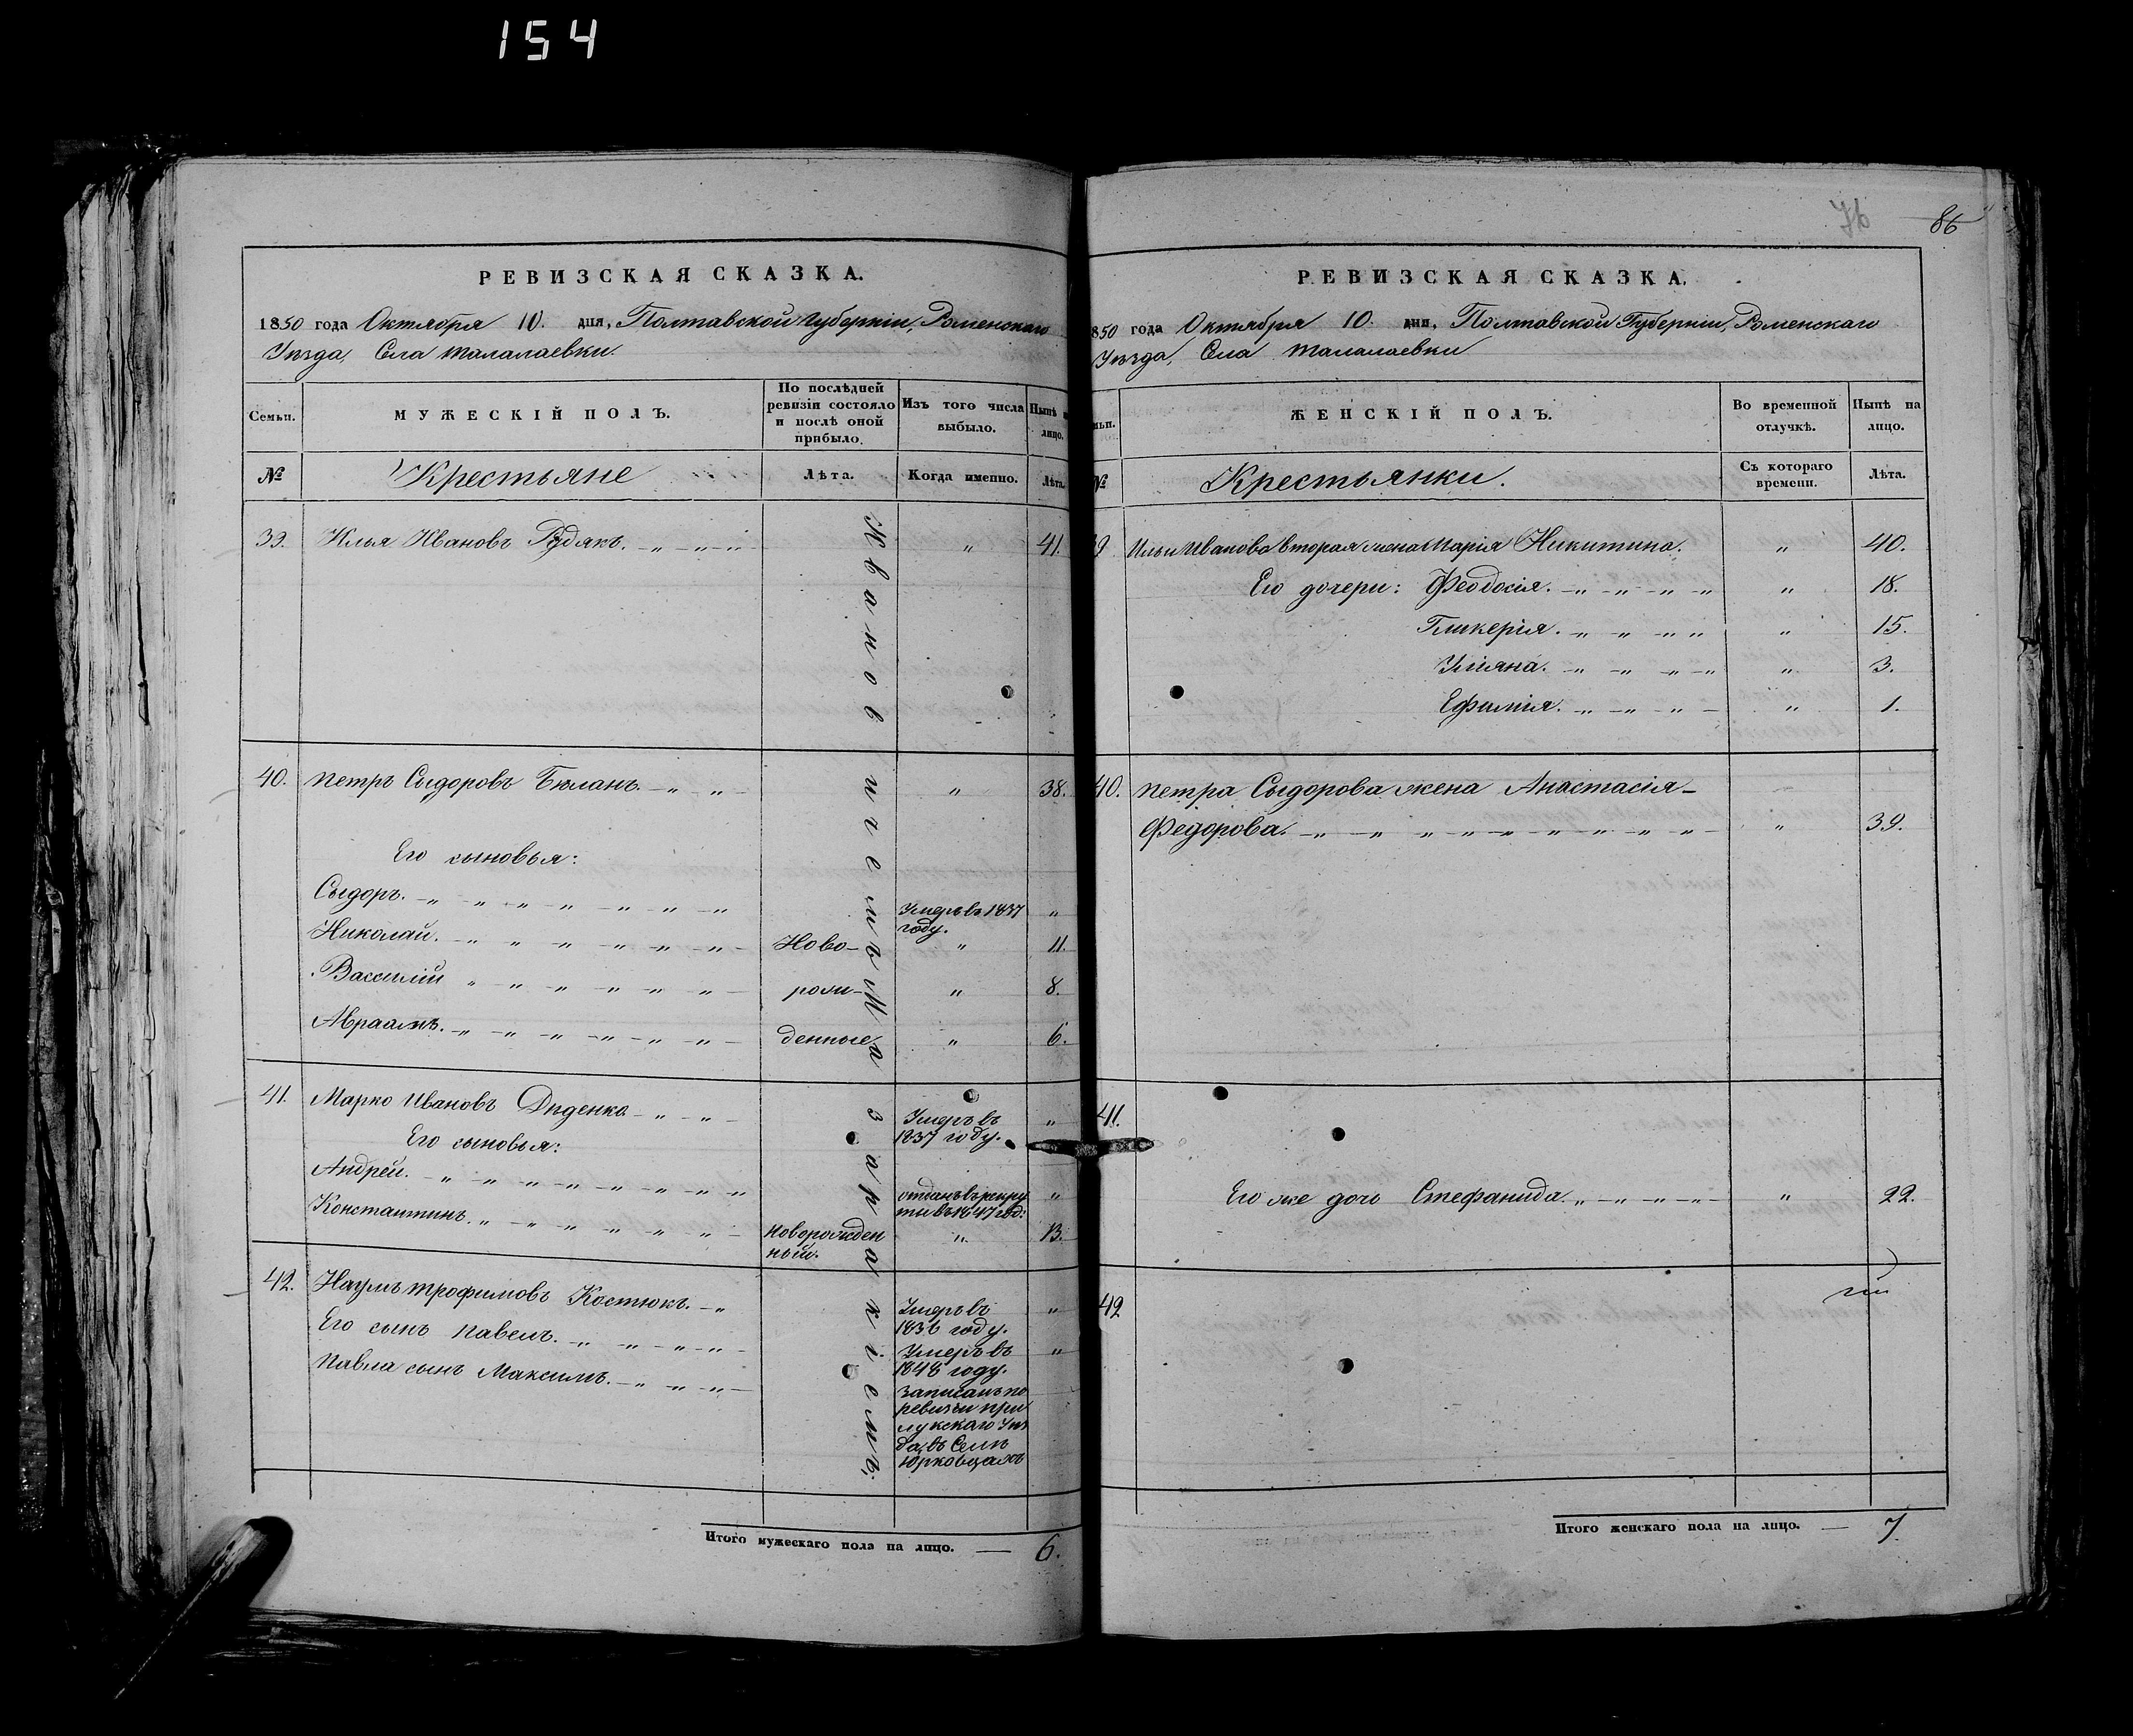 154
РЕВИЗСКАЯ СКАЗКА.
1850 года Октября 10. дня, Полтавской Губерніи, Роменскаго
Уѣзда, Села Талалаевки.
Семьи.
МУЖЕСКІЙ ПОЛЪ.
По послѣдней ревизіи состояло и послѣ оной прибыло.
Изъ того числа выбыло.
Нынѣ на лицо.
№
Крестьяне
Лѣта.
Когда именно.
Лѣта.
39. Илья Ивановъ Рудякъ. „ 41.
40. Петръ Сыдоровъ Бѣланъ. „ 38.
Его сыновья:
Сыдоръ. Умеръ въ 1837 году. „
Николай. Ново- „ 11.
Вассилій рож- „ 8.
Авраамъ. денные „ 6.
41. Марко Ивановъ Диденко Умеръ въ 1837 году. „
Его сыновья:
Андрей. отданъ въ рекруты въ 1847 год: „
Константинъ. Новорожденный. „ 13.
42. Наумъ Трофимовъ Костюкъ. Умеръ въ 1836 году. „
Его сынъ Павелъ. Умеръ въ 1848 году. „
Павла сынъ Максимъ. записанъ по ревизіи прилукскаго Уѣзда, въ Селѣ Юрковцахъ
Итого мужескаго пола на лицо. — 6.
76 86
РЕВИЗСКАЯ СКАЗКА.
850 года Октября 10. дня, Полтавской Губерніи, Роменскаго
Уѣзда, Села Талалаевки
ьи.
ЖЕНСКІЙ ПОЛЪ.
Во временной отлучкѣ.
Нынѣ на лицо.
№
Крестьянки.
Съ котораго времени.
Лѣта.
9 Ильи Иванова вторая жена Марія Никитина. „ 40.
Его дочери: Феодосія. „ 18.
Гликерія. „ 15.
Уліяна. „ 3.
Ефимія. „ 1.
40. Петра Сыдорова жена Анастасія
Федорова. „ 39.
41.
Его же дочь Стефанида. „ 22.
42
Итого женскаго пола на лицо. — 7.